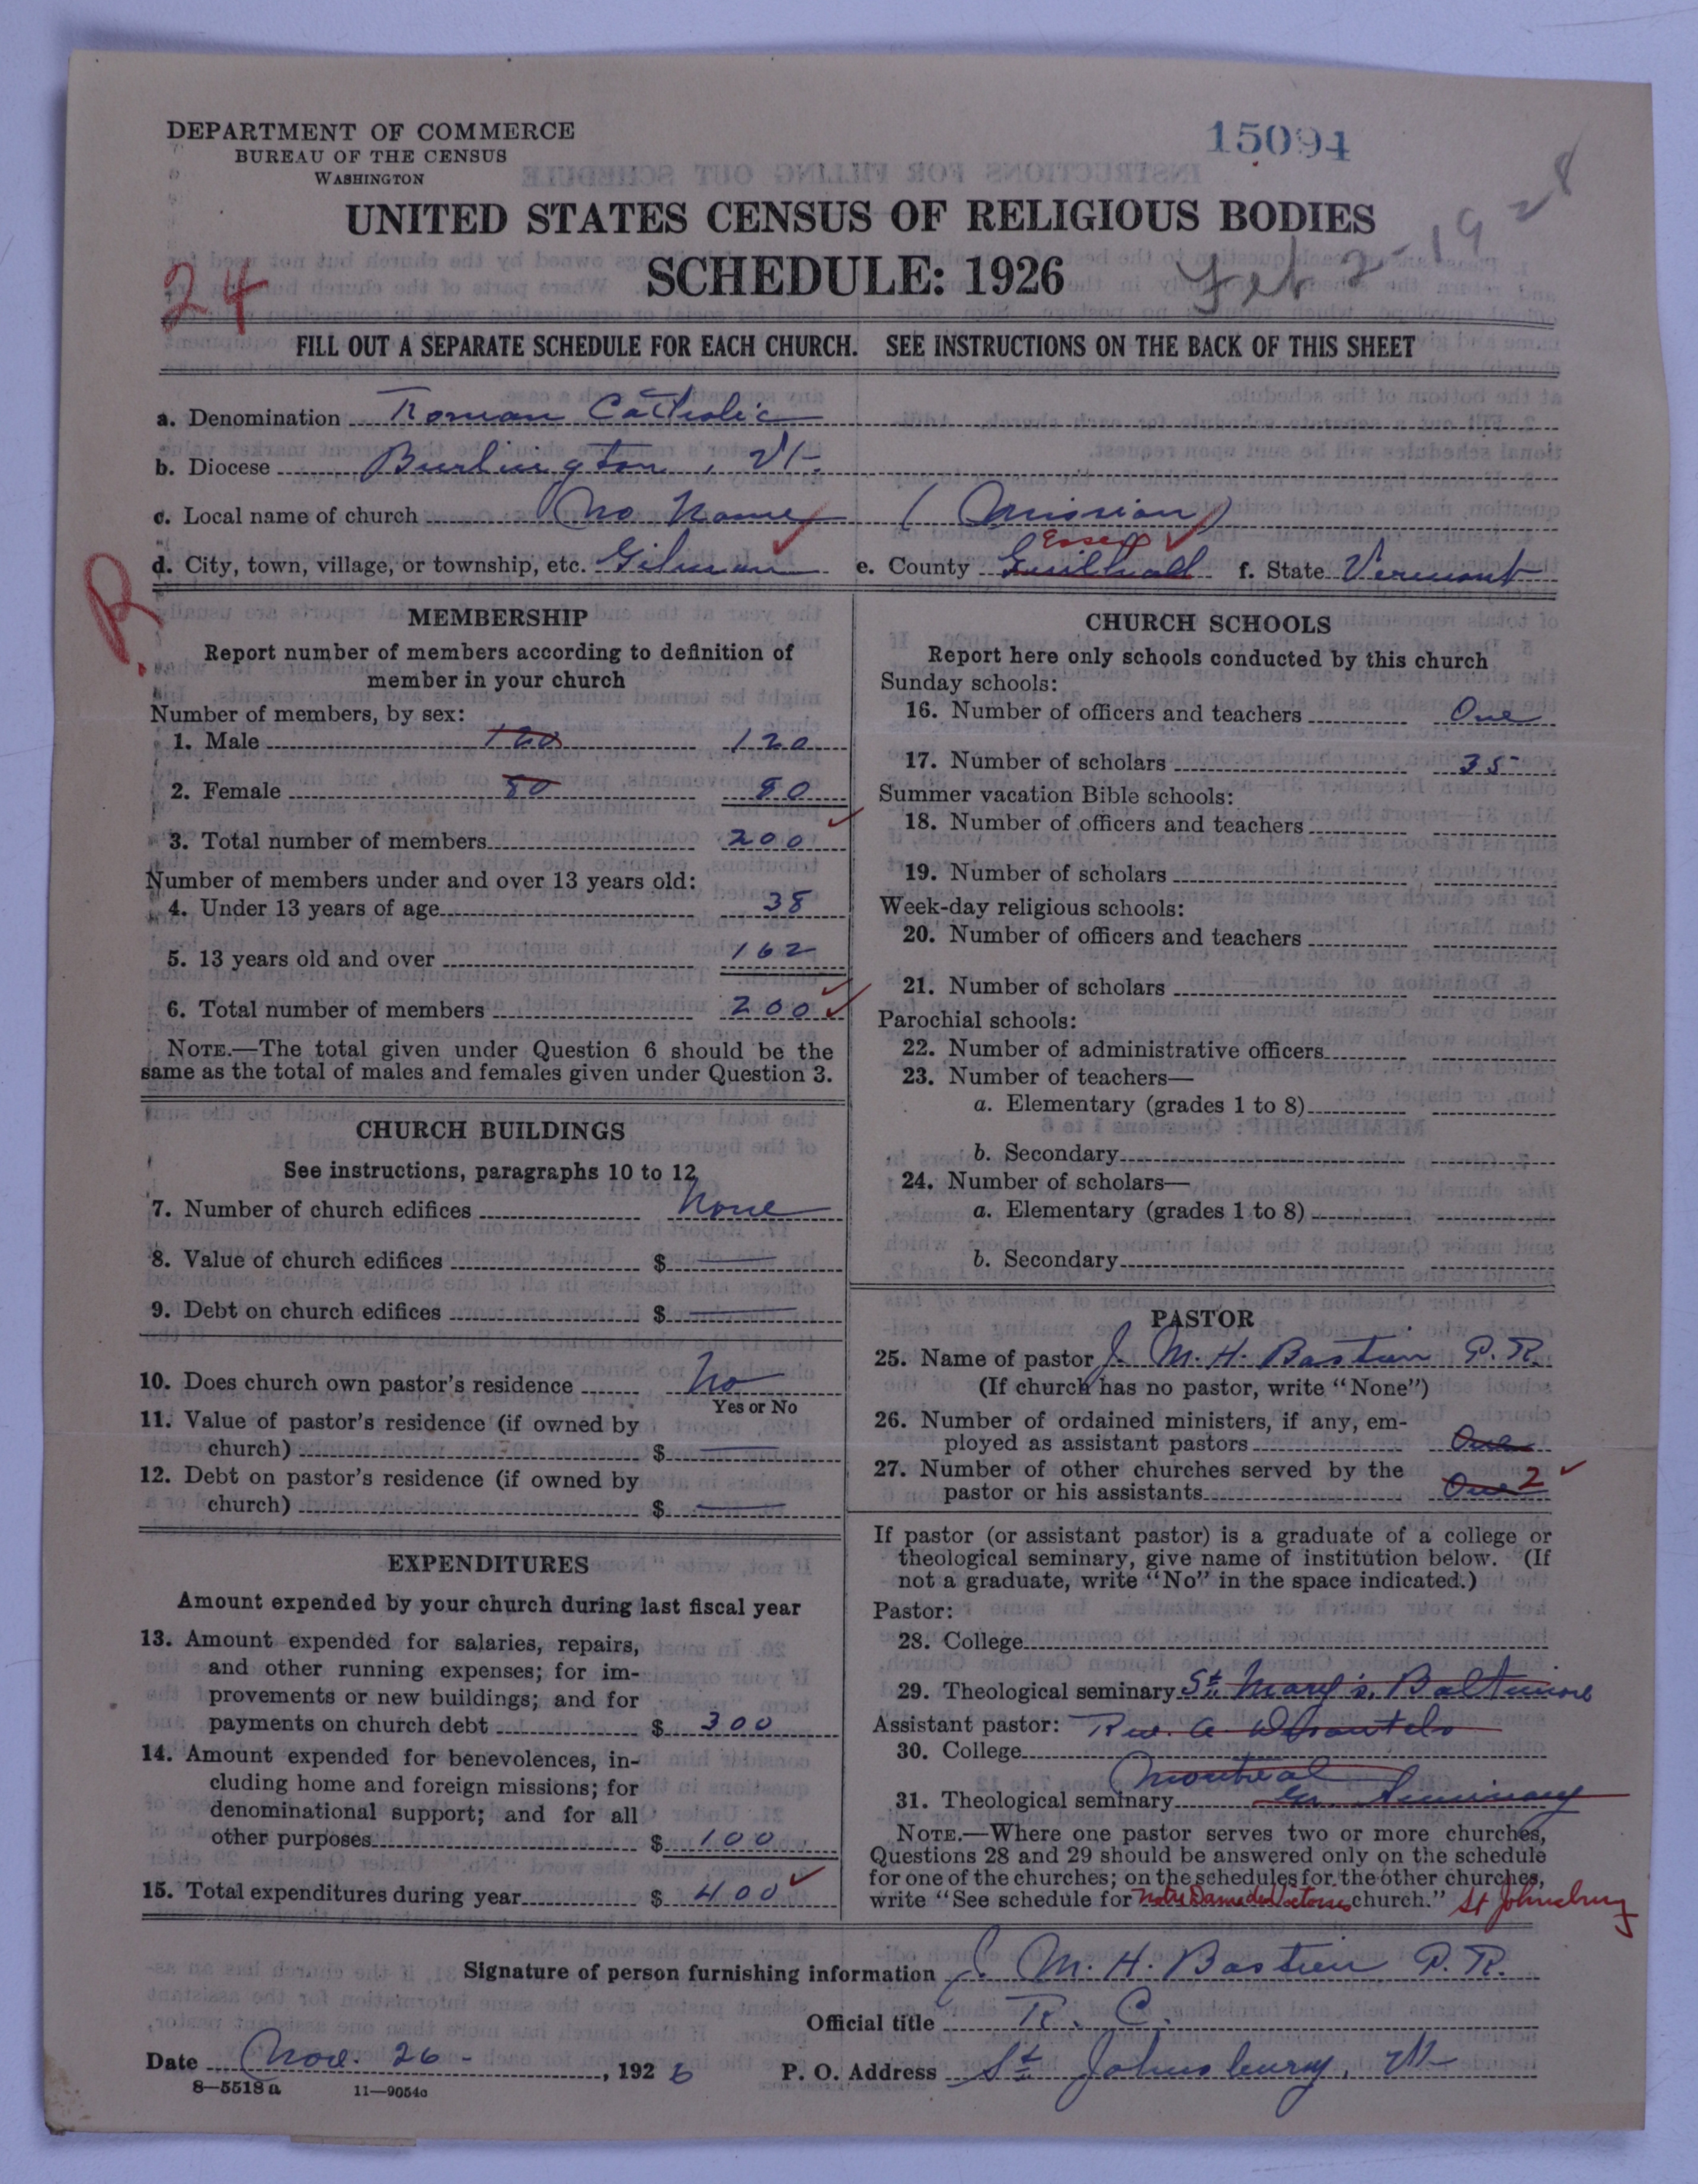 DEPARTMENT OF COMMERCE
BUREAU OF THE CENSUS
WASHINGTON
15094
UNITED STATES CENSUS OF RELIGIOUS BODIES
SCHEDULE: 1926
Feb 2-1928
24
FILL OUT A SEPARATE SCHEDULE FOR EACH CHURCH. SEE INSTRUCTIONS ON THE BACK OF THIS SHEET
a. Denomination Roman Catholic
b. Diocese Burlington, Vt.
c. Local name of church No Name (Mission)
Essex
d. City, town, village, or township, etc. Gilman e. County Guildhall f. State Vermont
R.
MEMBERSHIP
Report number of members according to definition of
member in your church
Number of members, by sex:
1. Male 120 120
2. Female 80 80
3. Total number of members 200
Number of members under and over 13 years old:
4. Under 13 years of age 38
5. 13 years old and over 162
6. Total number of members 200
NOTE.—The total given under Question 6 should be the
same as the total of males and females given under Question 3.
CHURCH BUILDINGS
See instructions, paragraphs 10 to 12
7. Number of church edifices None
8. Value of church edifices $ —
9. Debt on church edifices $ —
10. Does church own pastor's residence No
Yes or No
11. Value of pastor's residence (if owned by
church) $ —
12. Debt on pastor's residence (if owned by
church) $ —
EXPENDITURES
Amount expended by your church during last fiscal year
13. Amount expended for salaries, repairs,
and other running expenses; for im-
provements or new buildings; and for
payments on church debt $ 300
14. Amount expended for benevolences, in-
cluding home and foreign missions; for
denominational support; and for all
other purposes $ 100
15. Total expenditures during year $ 400
CHURCH SCHOOLS
Report here only schools conducted by this church
Sunday schools:
16. Number of officers and teachers One
17. Number of scholars 35
Summer vacation Bible schools:
18. Number of officers and teachers
19. Number of scholars
Week-day religious schools:
20. Number of officers and teachers
21. Number of scholars
Parochial schools:
22. Number of administrative officers
23. Number of teachers—
a. Elementary (grades 1 to 8)
b. Secondary
24. Number of scholars—
a. Elementary (grades 1 to 8)
b. Secondary
PASTOR
25. Name of pastor J. M. H. Bastien P. R.
(If church has no pastor, write "None")
26. Number of ordained ministers, if any, em-
ployed as assistant pastors One
27. Number of other churches served by the
pastor or his assistants One 2
If pastor (or assistant pastor) is a graduate of a college or
theological seminary, give name of institution below. (If
not a graduate, write "No" in the space indicated.)
Pastor:
28. College
29. Theological seminary St. Mary's, Baltimore
Assistant pastor: Rev. A.
30. College
Montreal
31. Theological seminary Gr. Seminary
NOTE.—Where one pastor serves two or more churches,
Questions 28 and 29 should be answered only on the schedule
for one of the churches; on the schedules for the other churches,
write "See schedule for Notre Dame des Victoires church." St Johnsbury
Signature of person furnishing information J. M. H. Bastien P. R.
Official title R. C.
Date Nov. 26 - , 1926 P. O. Address St. Johnsbury, Vt
8—5518a 11—9054a